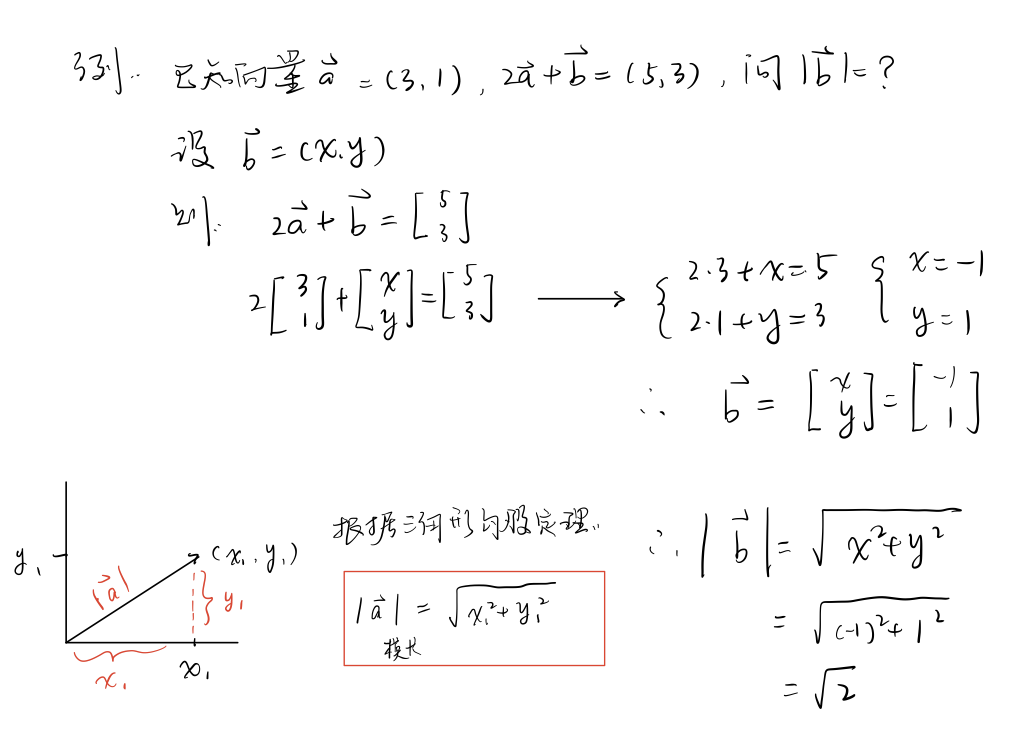 例: 已知向量 a⃗ = (3,1), 2a⃗+b⃗ = (5,3), 问 |b⃗|=?
设 b⃗ = (x.y)
则: 2a⃗ + b⃗ = [5 3]
2[3 1]+[x y]=[5 3] → { 2·3+x=5 2·1+y=3 { x=-1 y=1
∴ b⃗ = [x y]=[-1 1]
y₁ (x₁, y₁) |a⃗| y₁ x₁ x₁
根据三角形勾股定理..
|a⃗| = √x₁²+y₁²
模长
∴ |b⃗| = √x²+y²
= √(-1)²+1²
= √2